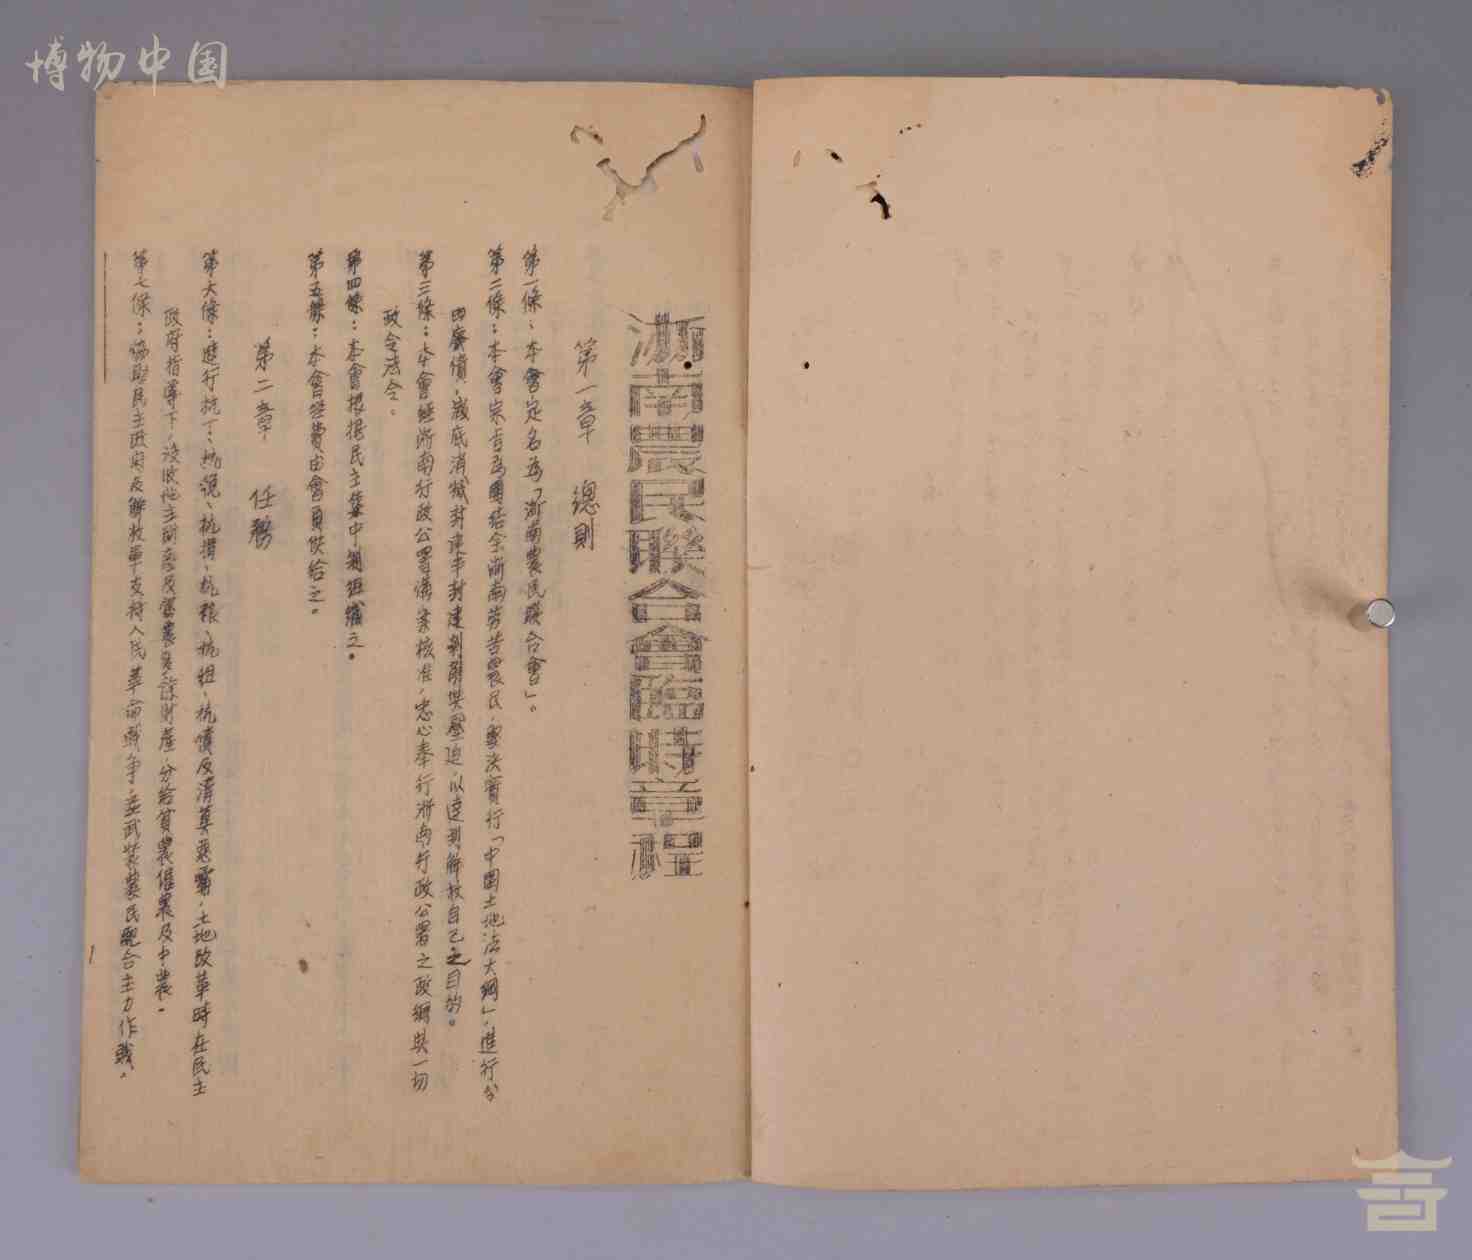 博物中国
浙南農民聯合會臨時章程
第一章 總則
第一條：本會定名為「浙南農民聯合會」。
第二條：本會宗旨為團結全浙南勞苦農民，堅決實行「中國土地法大綱」，進行分
田廢債，澈底消滅封建半封建剝削與壓迫，以達到解放自己之目的。
第三條：本會經浙南行政公署備案核准，忠心奉行浙南行政公署之政綱與一切
政令法令。
第四條：本會根据民主集中制組織之。
第五條：本會經費由會員供給之。
第二章 任務
第六條：進行抗丁、抗稅、抗捐、抗粮、抗租、抗債反清算惡霸，土地改革時在民主
政府指導下，沒收地主財產及富農多餘財產，分給貧農僱農及中農。
第七條：協助民主政府及解放軍支持人民革命戰爭，並武裝農民配合主力作戰。
1